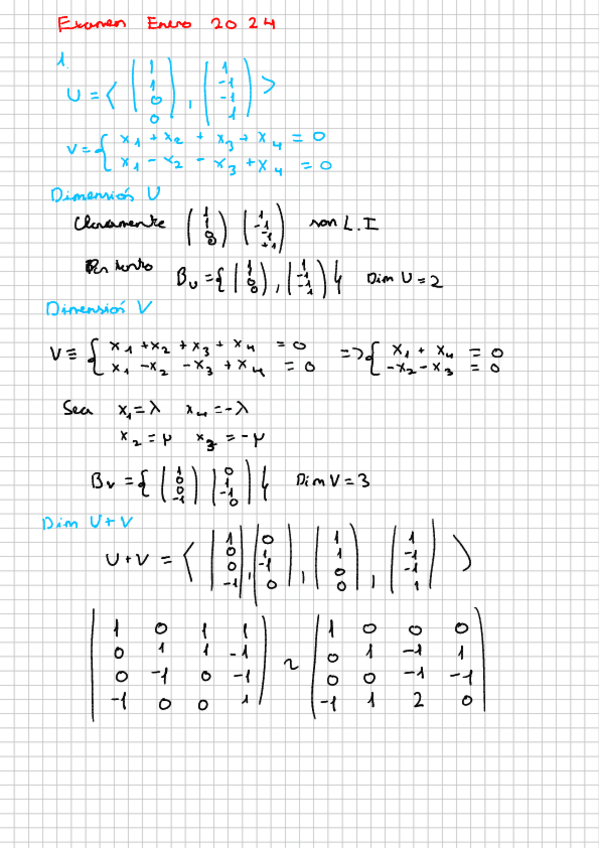 Examen Enero 2024
1.
U = < (1 1 0 0), (1 -1 -1 1) >
V = { x1 + x2 + x3 + x4 = 0
x1 - x2 - x3 + x4 = 0
Dimensión U
Claramente (1 1 0 0) (1 -1 -1 +1) son L.I
Por tanto Bu = { (1 1 0 0), (1 -1 -1 1) } Dim U = 2
Dimensión V
V ≡ { x1 + x2 + x3 + x4 = 0 => { x1 + x4 = 0
x1 - x2 - x3 + x4 = 0 -x2 - x3 = 0
Sea x1 = λ x4 = -λ
x2 = μ x3 = -μ
Bv = { (1 0 0 -1) (0 1 -1 0) } Dim V = 3
Dim U+V
U+V = < (1 0 0 -1), (0 1 -1 0), (1 1 0 0), (1 -1 -1 1) >
1 0 1 1 ~ 1 0 0 0
0 1 1 -1 0 1 -1 1
0 -1 0 -1 0 0 -1 -1
-1 0 0 1 -1 1 2 0